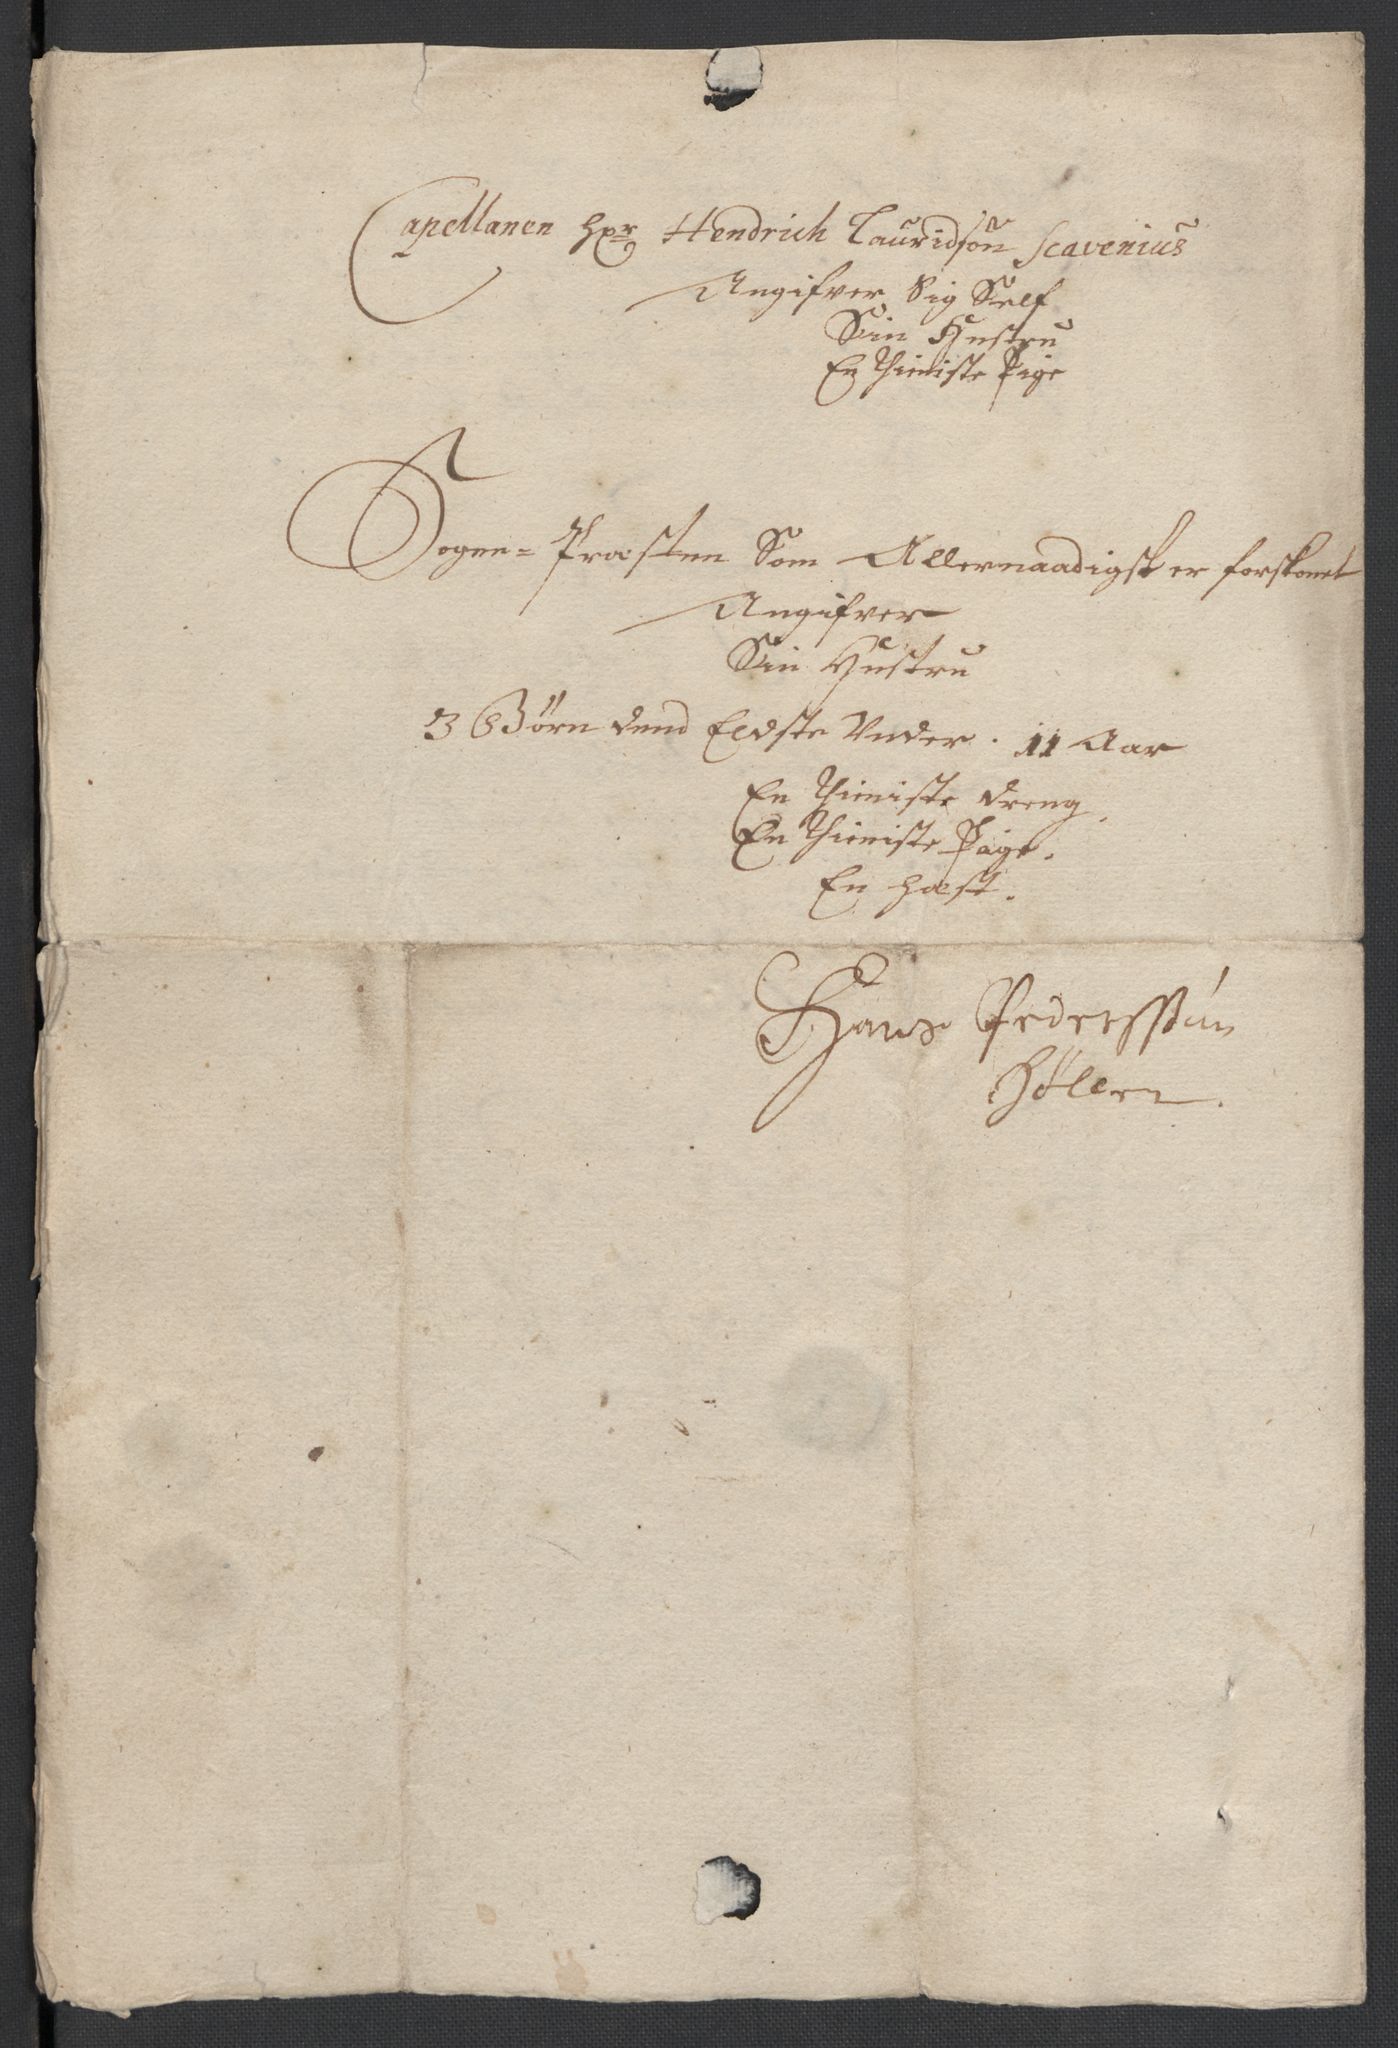 Capellanen Hr Hendrich Lauridsön Scavenius
Angifver Sig Self
Sin Hustru
En Thieniste Pige
Sogne=Præsten Som Allernaadigst er forskonet
Angifver
Sin Hustru
3 Börn dend Eldste Under. 11 Aar
En Thieniste dreng.
En Thieniste Pige.
En hæst.
Hans Pederssøn